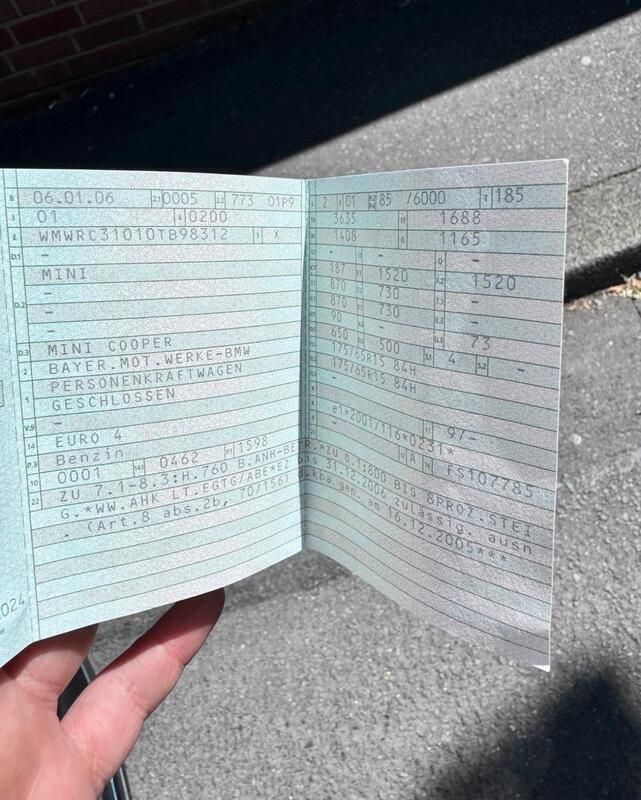 B 06.01.06 2.1 0005 2.2 773 01P9
J 01 4 0200
E WMWRC31010TB98312 3 X
D.1 -
MINI
-
D.2 -
-
-
D.3 MINI COOPER
2 BAYER.MOT.WERKE-BMW
5 PERSONENKRAFTWAGEN
GESCHLOSSEN
V.9 -
14 EURO 4
P.3 Benzin
10 0001 14.1 0462 P.1 1598
22 ZU 7.1-8.3:H.760 B.ANH-BETR.*ZU O.1:800 BIS 8PROZ.STEI
G.*WW.AHK LT.EGTG/ABE*EZ bis 31.12.2006 zulässig. ausn
. (Art.8 abs.2b, 70/156) d.kba gen. am 16.12.2005***
L 2 9 01 P.2 P.4 85 /6000 T 185
18 3635 19 1688
1408 G 1165
- - Q -
V.7 187 1520 F.2 1520
870 730 -
870 730 -
90 - -
650 500 U.3 73
175/65R15 84H S.1 4 S.2 -
175/65R15 84H
-
-
e1*2001/116*0231*
11 9/-
A 16 FS107785
2024